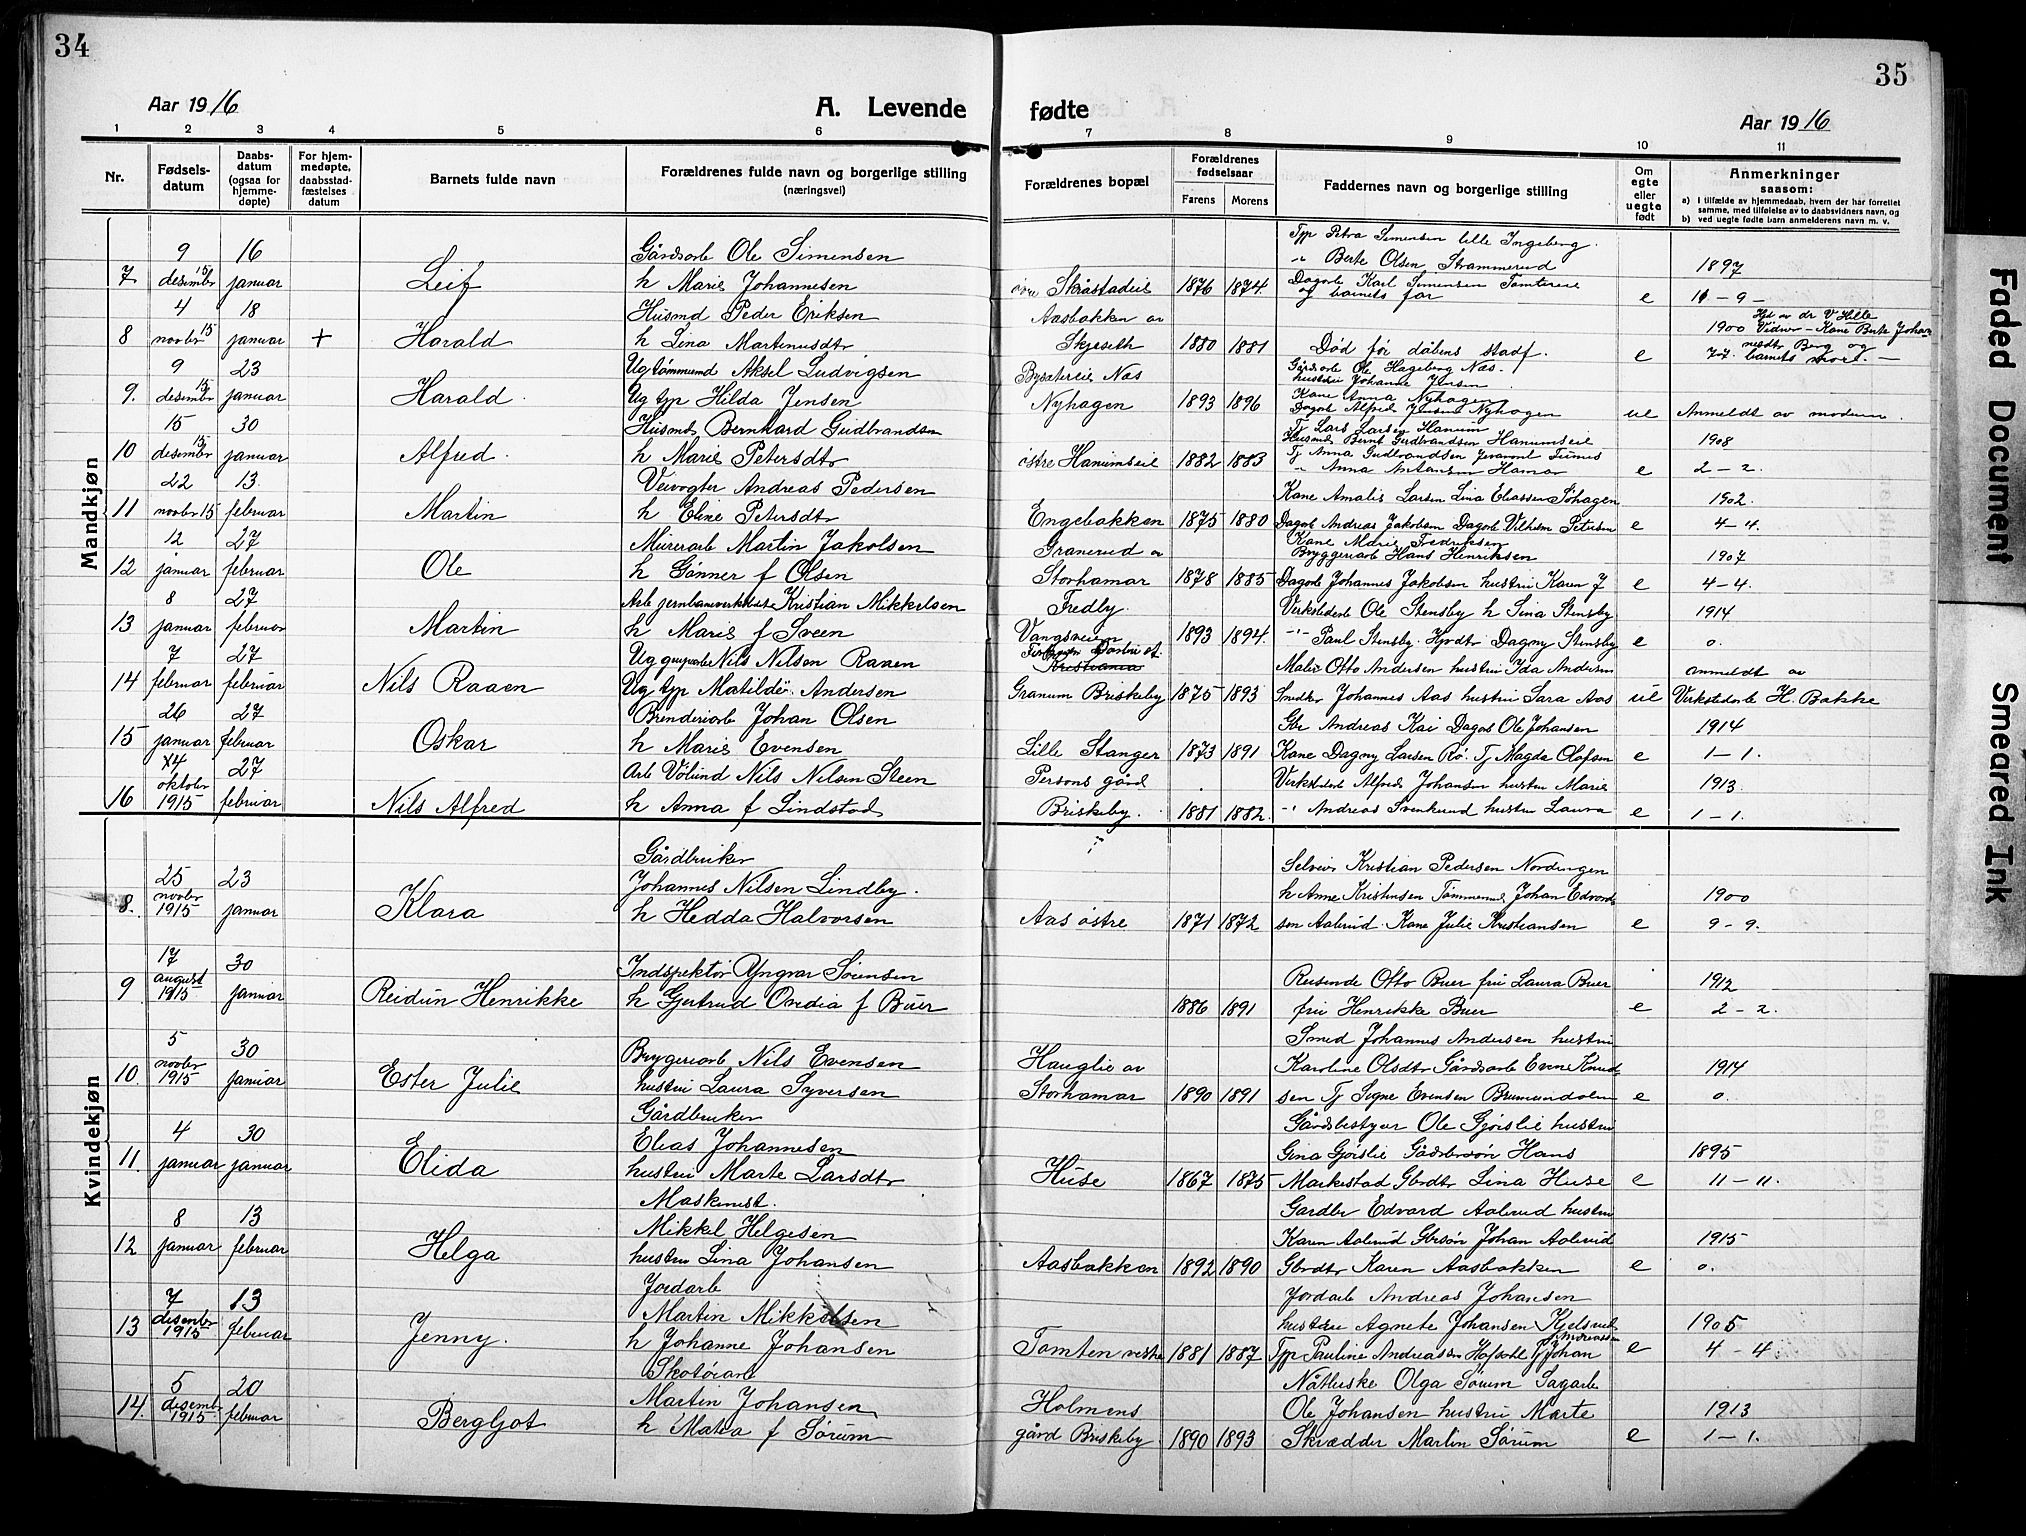 34
Aar 1916
A. Levende
1 2 3 4 5 6
Nr.
Fødsels-
datum
Daabs-
datum
(ogsaa for
hjemme-
døpte)
For hjem-
medøpte,
daabsstad-
fæstelses
datum
Barnets fulde navn
Forældrenes fulde navn og borgerlige stilling
(næringsvei)
Mandkjøn
9 16 Gårdsarb Ole Simensen
7 desembr 15 januar Leif h Marie Johannesen
4 18 Husmd Peder Eriksen
8 novbr 15 januar + Harald h Lina Martinusdtr
9 23 Ug tømmermd Aksel Ludvigsen
9. desembr 15 januar Harald. Ug typ Hilda Jensen
15 30 Husmd Bernhard Gudbrandsen
10 desembr 15 januar Alfred. h Marie Petersdtr
22 13. Veivogter Andreas Pedersen
11 novbr 15 februar Martin h Eline Petersdtr
12 27 Mürerarb Martin Jakobsen
12 januar februar Ole h Günner f Olsen
8 27 Arb jernbaneverksted Kristian Mikkelsen
13 januar februar Martin h Marie f Sveen
7 27 Ug Nils Nilsen Raaen
14 februar februar Nils Raaen Ug typ Matilde Andersen
26 27 Brenderiarb Johan Olsen
15 januar februar Oskar h Marie Evensen
14 27 Arb Vølund Nils Nilsen Steen
16 oktober 1915 februar Nils Alfred h Anna f Lindstad
Kvindekjøn
Gårdbruker
25 23 Johannes Nilsen Lindby.
8. novbr 1915 januar Klara h Hedda Halvorsen
17 30 Indspektør Yngvar Sørensen
9 august 1915 januar Reidun Henrikke h Gjertrud Ovidia f Buer
5 30 Bryggeriarb Nils Evensen
10 novbr 1915 januar Ester Julie hustru Laura Syversen
Gårdbruker
4 30 Elias Johannesen
11. januar januar Elida hustru Marte Larsdtr
Maskinist.
8 13 Mikkel Helgesen
12 januar februar Helga hustru Lina Johansen
Jordarb
7 13 Martin Mikkelsen
13 desembr 1915 februar Jenny. h Johanne Johansen
Skotøiarb
5 20 Martin Johansen
14. desembr 1915 februar Bergljot h Matea f Sørum
35
fødte
Aar 1916
7 8 9 10 11
Forældrenes bopæl
Forældrenes
fødselsaar
Farens Morens
Faddernes navn og borgerlige stilling
Om
egte
eller
uegte
født
Anmerkninger
saasom:
a) I tilfælde av hjemmedaab, hvem der har forrettet
samme, med tilføielse av to daabsvidners navn, og
b) ved uegte fødte barn anmelderens navn m. v.
Typ Petra Simensen lille Ingeberg.
" Berte Olsen Strammerud 1897
øvre Skråstadeie 1876 1874. Dagarb Karl Simensen Tomtereie
og barnets far e 11-9-
Aasbakken av Hjd av dr V Hille
1900 Vidner - Kane Berte Johan
Skjeseth 1880 1881 Død før dåbens stadf. e 7-7. nesdtr Berg og
barnets mort.-
Bysætereie Næs Gårdsarb Ole Hageberg Næs.
hustru Johanne Jensen
Nyhagen 1893 1896 Kane Anna Nyhagen
Dagarb Alfred Jensen Nyhagen ue Anmeldt av moderen.
Tj Lars Larsen Hanum
Husmd Bernt Gudbrandsen Hanumseie 1908
østre Hanumseie 1882 1883 Tj Anna Gudbrandsen
" Anna Antonsen Hamar e 2-2.
Kane Amalie Larsen Lina Eliassen Søhagen 1902.
Engebakken 1875 1880 Dagarb Andreas Jakobsen Dagarb Vilhelm Petersen e 4-4.
Granerud av Kane Marie Fredriksen
Bryggeriarb Hans Henriksen 1907
Storhamar 1878 1885 Dagarb Johannes Jakobsen hustru Karen J e 4-4.
Fredly. Verkstedarb Ole Stensby h Lina Stensby 1914
Vangsveien 1893 1894. -"- Paul Stensby. Hjvdtr Dagny Stensby e 0.
Kristiania Maler Otto Andersen hustru Ida Andersen anmeldt av
Granum Briskeby 1875 1893 Snedker Johannes Aas hustru Sara Aas ue Verkstedarb H. Bakke
Gbr Andreas Kai Dagarb Ole Johansen 1914
Lille Stanger 1873 1891 Kane Dagny Larsen Rø. Tj Magda Olafsen e 1-1.
Persons gård Verkstedarb Alfred Johansen hustru Marie 1913.
Briskeby. 1881 1882. -"- Andreas Svenkerud hustru Laura e 1-1.
Selveier Kristian Pedersen Nordingen
h Anne Kristinsen Tømmermd Johan Edvard- 1900
Aas østre 1871 1872 sen Aalerud. Kane Julie Kristiansen e 9-9.
Reisende Otto Buer fru Laura Buer 1912
1886 1891 fru Henrikke Buer e 2-2.
Smed Johannes Andersen hustru
Hauglie av Karoline Olsdtr Gårdsarb Even Knud- 1914
Storhamar 1890 1891 sen Tj Signe Evensen Brumunddalen e 0.
Gårdsbestyrer Ole Gjøislie hustru
Gina Gjøislie Gådbrsøn Hans 1895
Huse 1867 1875 Markestad Gbrdtr Lina Huse e 11-11.
Gardbr Edvard Aalerud hustru
Karen Aalerud Gbrsøn Johan Aalerud 1915
Aasbakken 1892 1890 Gbrdtr Karen Aasbakken e 0.
Jordarb Andreas Johansen
hustru Agnete Johansen Kjelsrud 1905
Tomten vestre 1881 1887 Typ Pauline Andreassen Hafsahl Tj Johan Andreassen e 4-4.
Nåtlerske Olga Sørum Sagarb
Holmens Ole Johansen hustru Marte 1913
gård Briskeby 1890 1893 Skrædder Martin Sørum e 1-1.
Faded Document
Smeared Ink